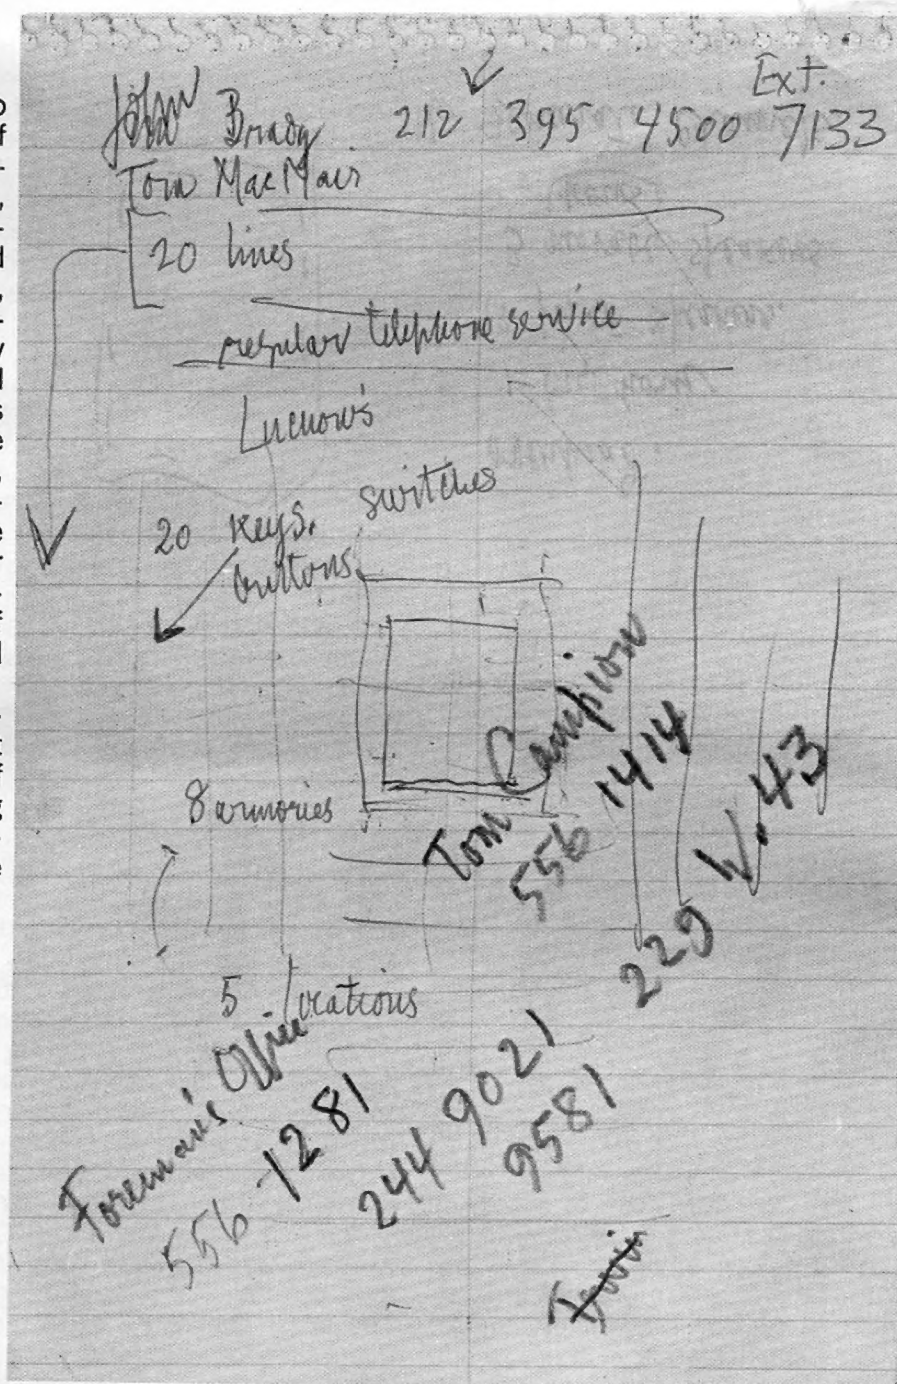 Ext.
John Brady 212 395 4500 7133
Tom MacMair
20 lines
regular telephone service
Luchow's
20 keys. switches
buttons
8 armories
Tom Campion
556 1414
229 W. 43
5 locations
Foreman's Office
556-1281
244 9021
9581